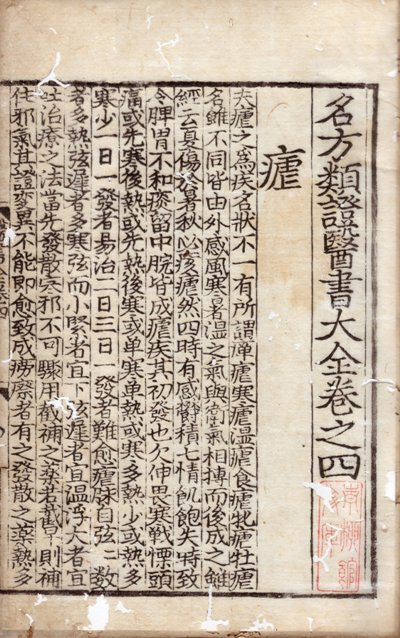 名方類證醫書大全卷之四
瘧
夫瘧之爲疾名狀不一有所謂癉瘧寒瘧温瘧食瘧牝瘧牡瘧
名雖不同皆由外感風寒暑温之氣與營氣相搏而後成之雖
經云夏傷於暑秋必痎瘧然四時有感鬱積七情飢飽失時致
令脾胃不和痰留中脘皆成瘧疾其初發也欠伸畏寒戰慄頭
痛或先寒後熱或先熱後寒或单寒单熱或寒多熱少或熱多
寒少一日一發者易治二日三日一發者難愈瘧脉自弦〻數
者多熱弦遲者多寒弦而小緊者宜下弦遲者宜温浮大者宜
吐治療之法當先發散寒邪不可驟用截補之藥若截早則補
住邪氣其證變異不能即愈致成癆瘵者有之發散之藥熱多